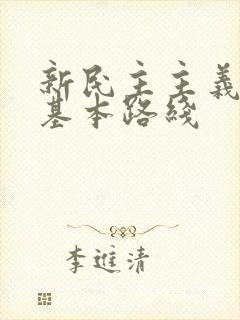 新民主主義
基本路綫
李進清